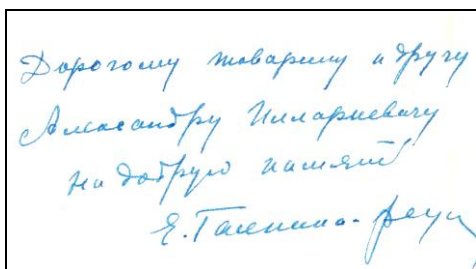 Дорогому товарищу и другу
Александру Иллариевичу
на добрую память
Е.